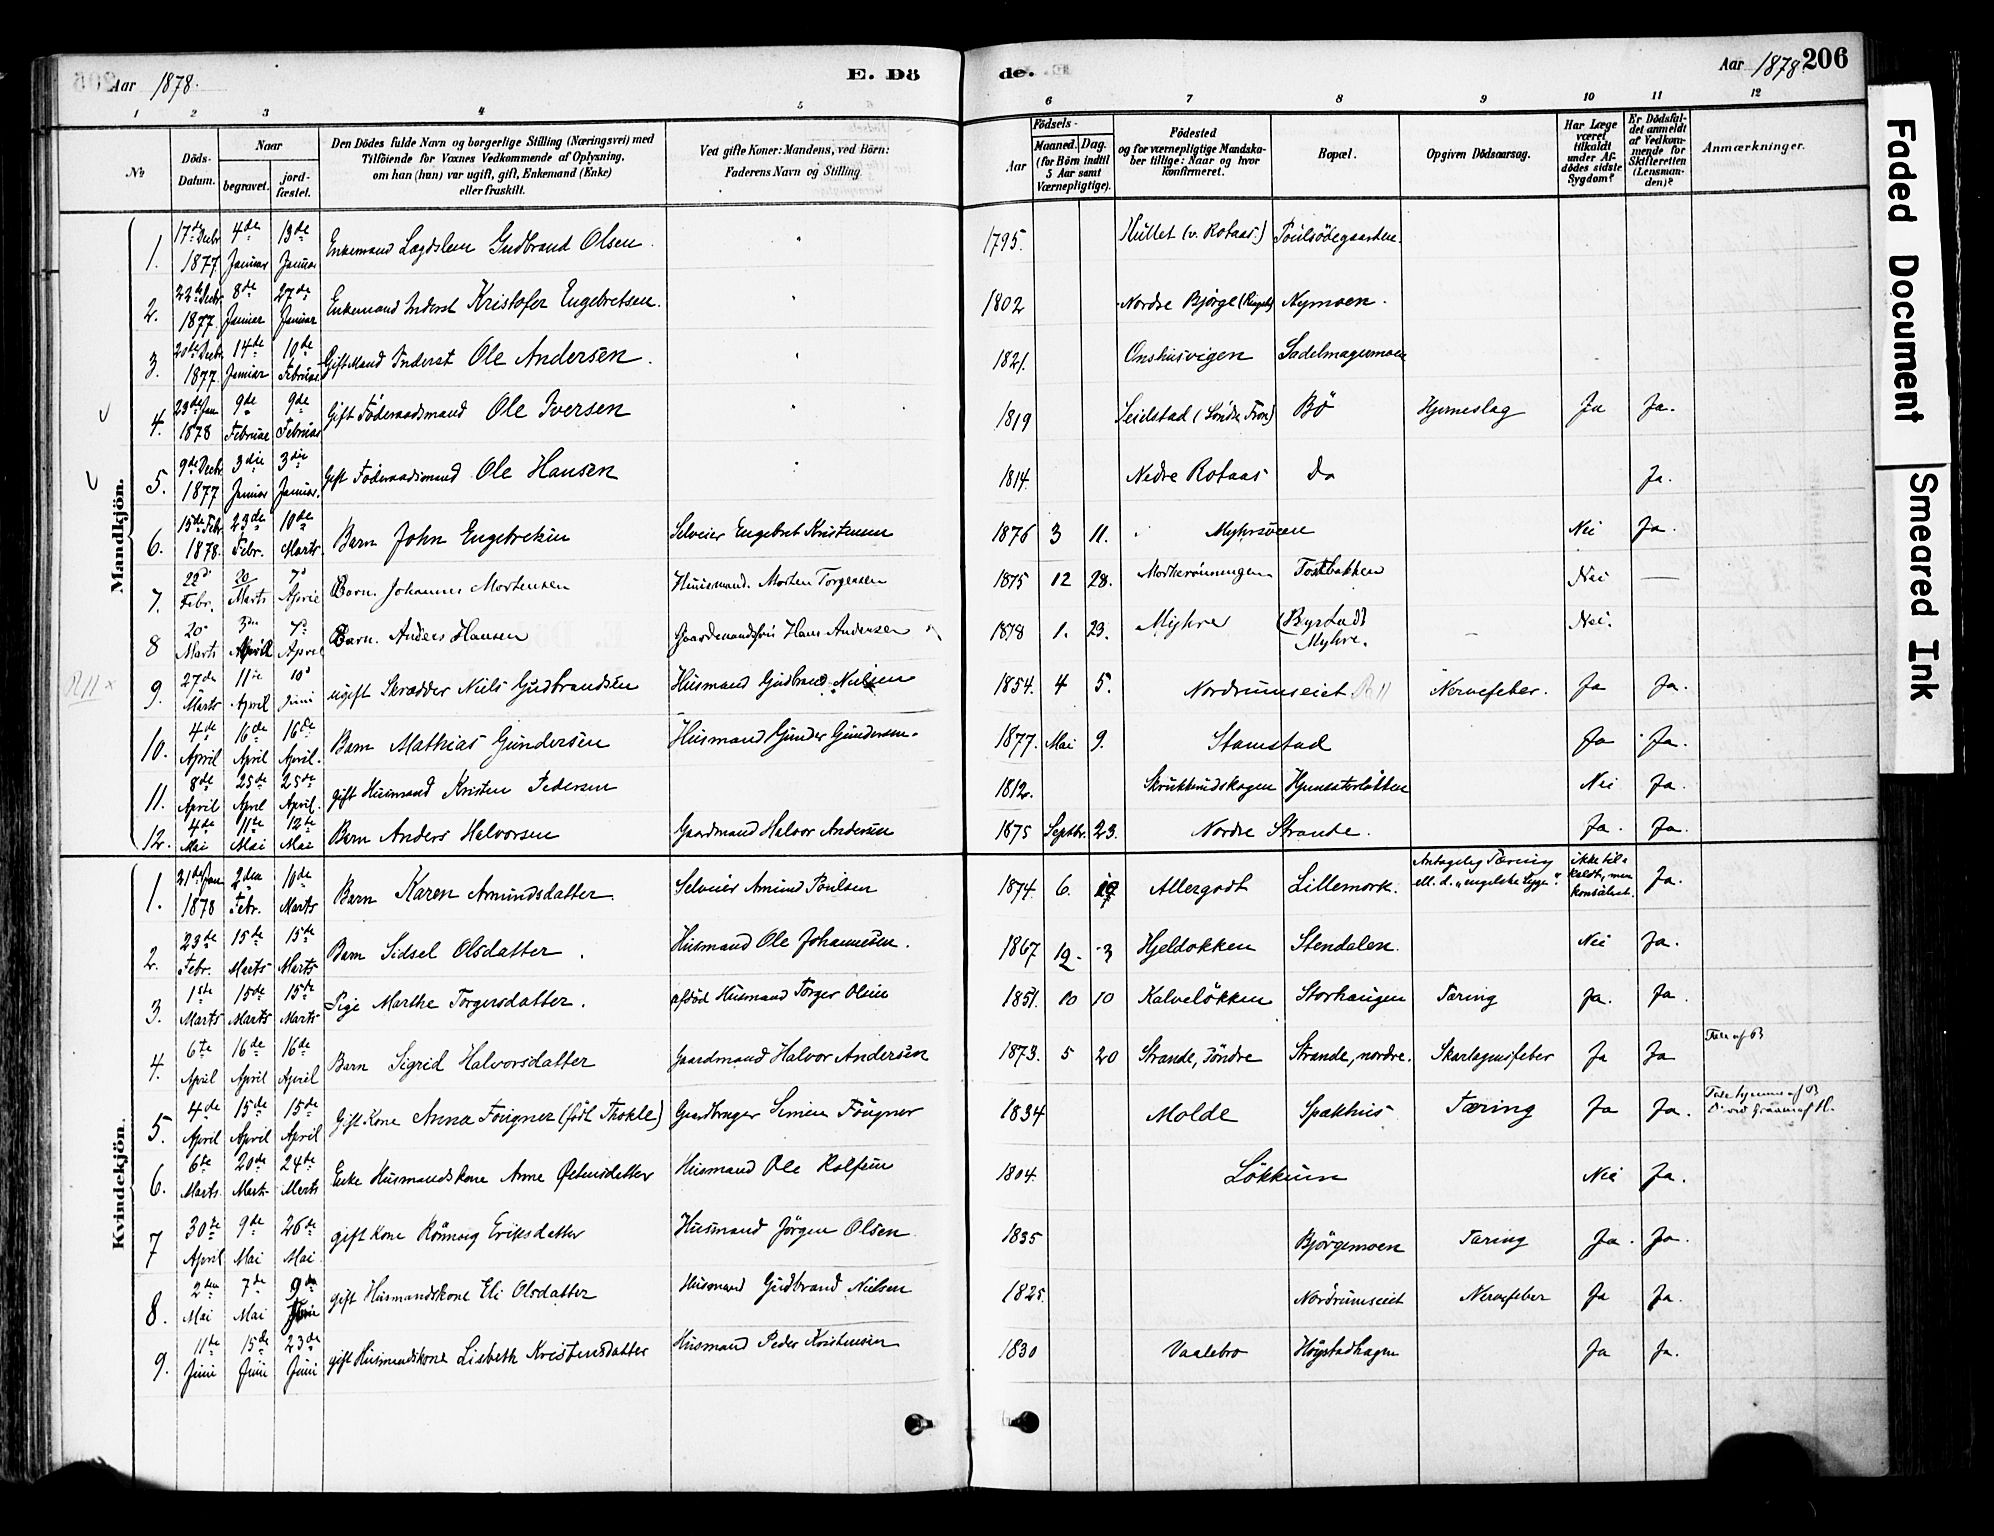 Aar 1878.
E. Dö
de.
Aar 1878. 206
1 2 3 4 5 6 7 8 9 10 11 12
No
Döds-Datum.
Naar
begravet.
jord-festet.
Den Dödes fulde Navn og borgerlige Stilling (Næringsvei) med
Tilföiende for Voxnes Vedkommende af Oplysning,
om han (hun) var ugift, gift, Enkemand (Enke)
eller fraskilt.
Ved gifte Koner: Mandens, ved Börn:
Faderens Navn og Stilling.
Födsels-
Aar
Maaned. Dag.
(for Börn indtil
5 Aar samt
Værnepligtige).
Födested
og for værnepligtige Mandska-
ber tillige: Naar og hvor
konfirmeret.
Bopæl.
Opgiven Dödsaarsag.
Har Læge
været
tilkaldt
under Af-
dödes sidste
Sygdom?
Er Dödsfal-
det anmeldt
af Vedkom-
mende for
Skifteretten
(Lensman-
den)?
Anmærkninger.
Mandkjön.
1. 17de Decbr 1877 4de Januar 13de Januar Enkemand Lægdslem Gudbrand Olsen. 1795. Hullet (v. Rotaas.) Poulsödegaarden.
2. 22de Decbr. 1877 8de Januar 27de Januar Enkemand Inderst Kristofer Engebretsen. 1802 Nordre Bjørge (Ringebo) Nymoen.
3. 20de Decbr 1877 14de Januar 10de Februar Gift Mand Inderst Ole Andersen. 1821. Onshusvigen Sadelmagermoen
4. 23de Jan 1878 9de Februar 9de Februar Gift Föderaadsmand Ole Iversen 1819 Seielstad (Söndre Fron) Bö Hjerneslag Ja Ja.
5. 9de Decbr. 1877 3die Januar 3die Januar. Gift Föderaadsmand Ole Hansen 1814. Nedre Rotaas Do Ja.
6. 15de Febr 1878. 23de Febr. 10de Marts Barn John Engebretsen Selveier Engebret Kristensen 1876 3 11. Myhrsveen Nei Ja.
7. 22d Febr. 20 Marts 7d April Barn. Johannes Mortensen Huusmand. Morten Torgersen 1875 12 28. Morkerönningen Tostbakken Nei —
8 20d Marts 3die April 7d April Barn. Anders Hansen Gaardmand Hans Andersen 1878 1. 23. Myhre (Byrstad) Myhre. Nei.
R 11 x
9. 27de Marts 11te April 10d Juni ugift Skrædder Niels Gudbrandsen Husmand Gudbrand Nielsen 1854. 4 5. Nordrumseiet R 11 Nervefeber. Ja Ja.
10. 4de April 16de April 16de April. Barn Mathias Gundersen Husmand Gunder Gundersen. 1877. Mai 9. Stamstad Ja Ja.
11. 8de April 25de April 25de April. gift Husmand Kristen Pedersen 1812. Skrukkerudskogen Nei Ja.
12. 4de Mai 11te Mai 12te Mai Barn Anders Halvorsen Gaardmand Halvor Andersen 1875 Septbr. 23. Nordre Strande. Ja. Ja.
Kvindekjön.
1. 21de Jan 1878 2den Febr. 10de Marts Barn Karen Amundsdatter. Selveier Amund Poulsen 1874 6. Allergodt Lillemork. Antagelig Tæring ell. d. "engelske Syge". ikke til-kaldt, men konsuleret. Ja.
2. 23de Febr. 15de Marts 15de Marts Barn Sidsel Olsdatter. Husmand Ole Johannesen. 1867 12 3 Hjeldokken Stendalen. Nei Ja.
3. 1ste Marts 15de Marts 15de Marts Pige Marthe Torgersdatter. afdöd Husmand Torger Olsen 1851. 10 10 Kalvelökken Storhaugen Tæring Ja. Ja.
4. 6te April 16de April 16de April Barn Sigrid Halvorsdatter Gaardmand Halvor Andersen 1873. 5 20 Strande, söndre Strande, nordre. Skarlagensfeber Ja Ja Tale af B
5. 4de April 15de April 15de April Gift Kone Anna Fougner (född Thokle) Gaardbruger Simen Fougner 1834 Molde Spækhus Tæring Ja Ja. Tale hjemme af B
6. 6te Marts 20de Marts 24de Marts Enke Husmandskone Anne Østensdatter Husmand Ole Rolfsen 1804. Lökkum Nei Ja.
7 30te April 9de Mai 26de Mai gift Kone Rönnoug Eriksdatter Husmand Jörgen Olsen 1835 Bjørgemoen Tæring Ja. Ja.
8. 2den Mai 7de Mai 9de Juni gift Husmandskone Eli Olsdatter Husmand Gudbrand Nielsen 1825. Nordrumseiet Nervefeber Ja Ja.
9. 11te Juni 15de Juni 23de Juni gift Husmandskone Lisbeth Kristensdatter Husmand Peder Kristensen 1830 Vaalebro Høystadhagen Ja Ja.
Faded Document
Smeared Ink